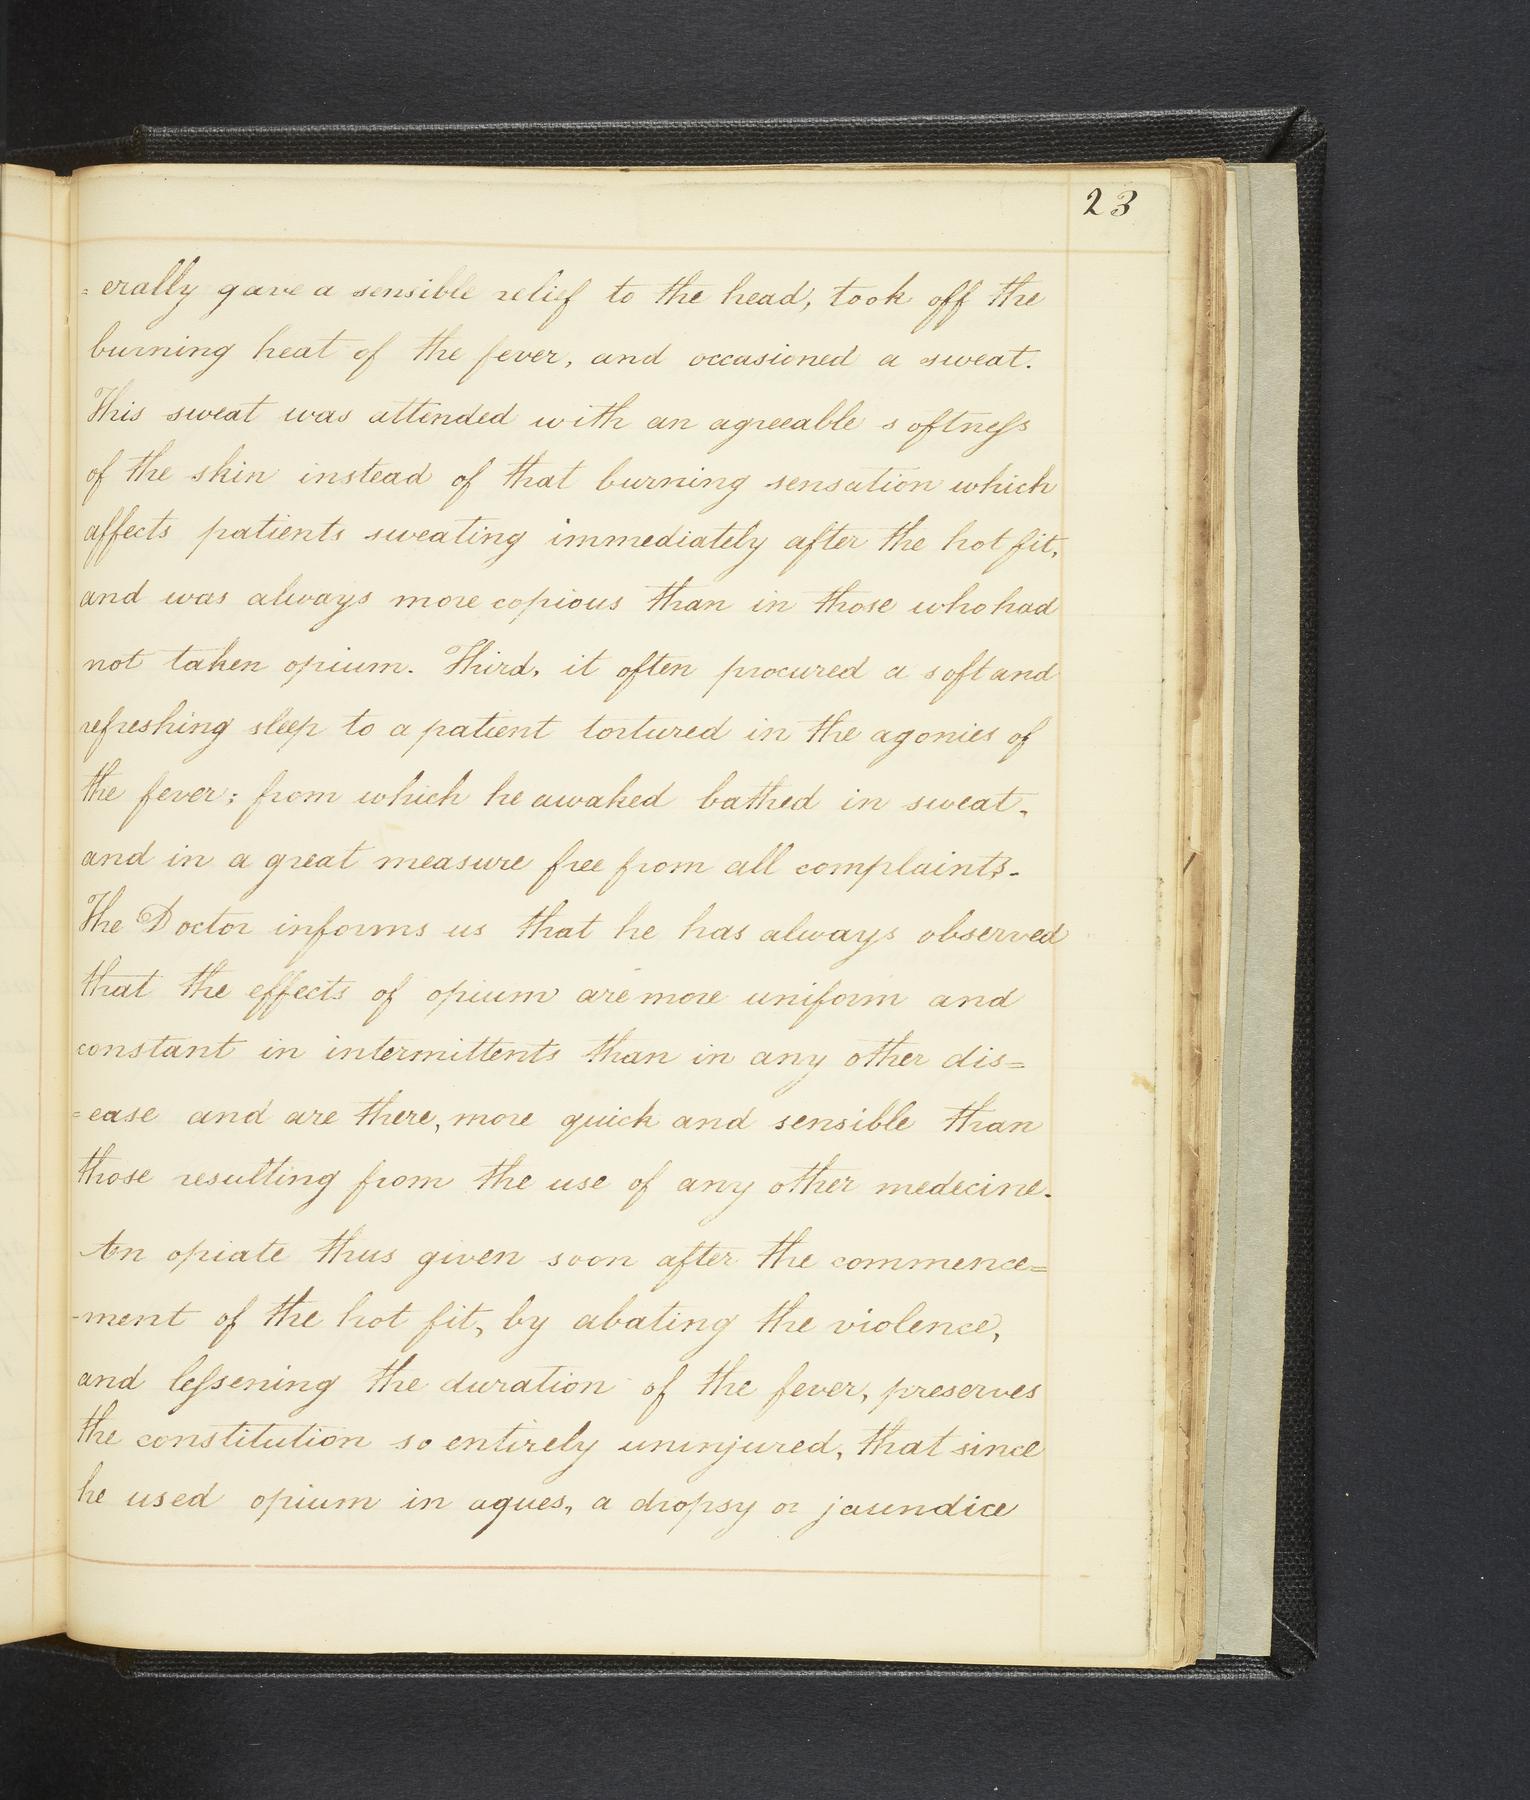 23
=erally gave a sensible relief to the head, took off the
burning heat of the fever, and occasioned a sweat.
This sweat was attended with an agreeable softneſs
of the skin instead of that burning sensation which
affects patients sweating immediately after the hot fit,
and was always more copious than in those who had
not taken opium. Third, it often procured a soft and
refreshing sleep to a patient tortured in the agonies of
the fever; from which he awaked bathed in sweat,
and in a great measure free from all complaints.
The Doctor informs us that he has always observed
that the effects of opium are more uniform and
constant in intermittents than in any other dis=
=ease and are there, more quick and sensible than
those resulting from the use of any other medecine.
An opiate thus given soon after the commence=
-ment of the hot fit, by abating the violence,
and leſsening the duration of the fever, preserves
the constitution so entirely uninjured, that since
he used opium in agues, a dropsy or jaundice